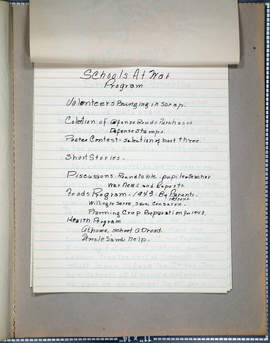 Schools At War
Program
Volunteers Bringing in Scrap.
Colection of Defense Bonds Purchases
Defense Stamps.
Poster Contest - selection of best three.
Short Stories.
Discussions. Roundtable, pupil & teacher
War News and Reports
Foods Program - 1943 - By Parents
Willing to Serve, Save, Conserve.
Planning Crop Preparation
Health Program
At home, school, abroad.
Uncle Sam's Help.
11" x 14"